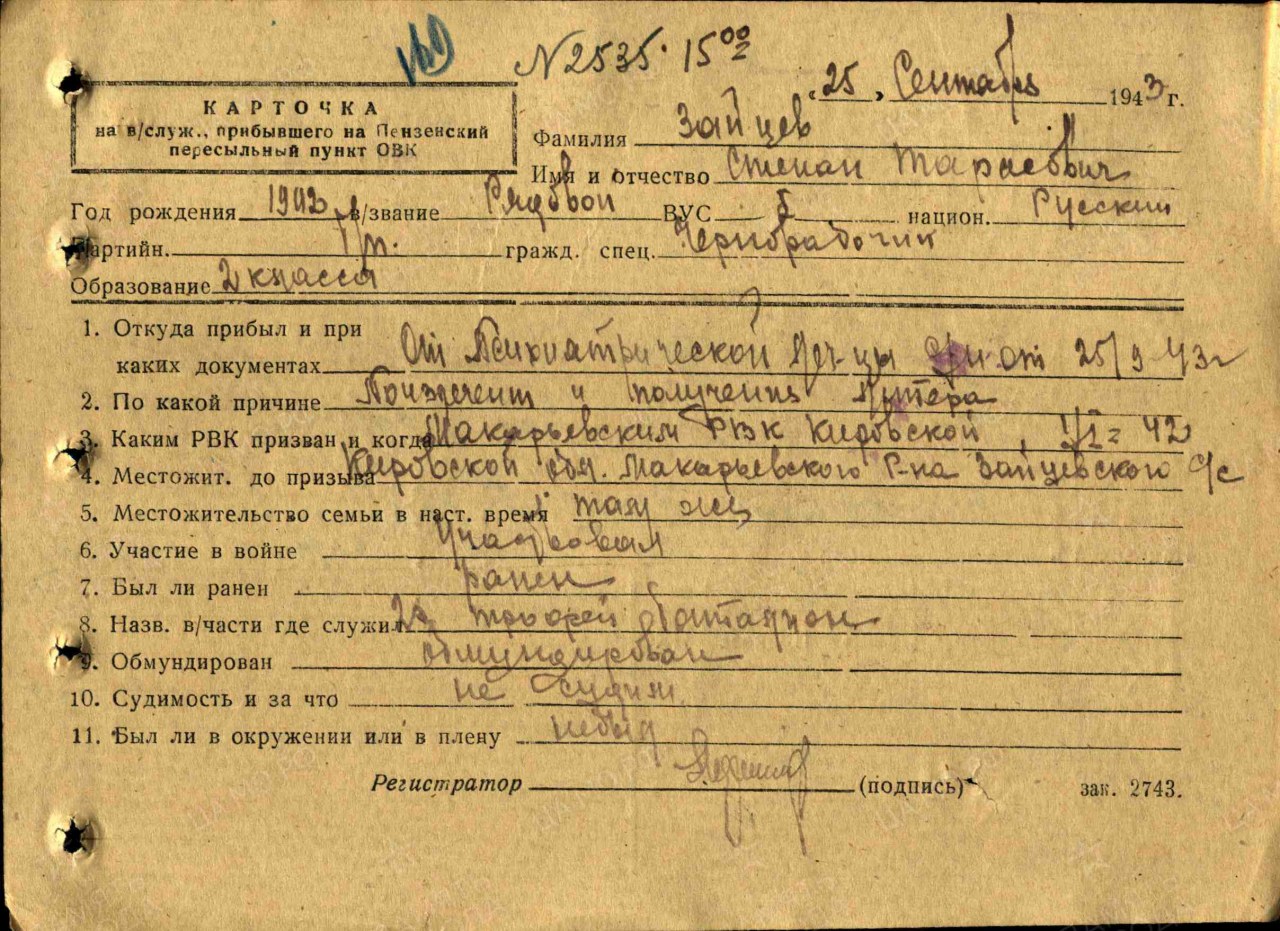 N2535. 15⁰⁰
"25" Сентября 1943 г.
КАРТОЧКА
на в/служ., прибывшего на Пензенский
пересыльный пункт ОВК
Фамилия Зайцев
Имя и отчество Степан Тарасович
Год рождения в/звание Рядовой ВУС национ. Русский
Партийн. гражд. спец. Чернорабочий
Образование 2 класса
1. Откуда прибыл и при
каких документах От Психиатрической от 25/9 43г
2. По какой причине По излечении и получения
3. Каким РВК призван и когда Макарьевским РВК Кировской 42
4. Местожит. до призыва Кировской обл. Макарьевского Р-на Зайцевского с/с
5. Местожительство семьи в наст. время там же
6. Участие в войне Участвовал
7. Был ли ранен ранен
8. Назв. в/части где служил трофей батальон
9. Обмундирован обмундирован
10. Судимость и за что не судим
11. Был ли в окружении или в плену небыл
Регистратор (подпись) зак. 2743.